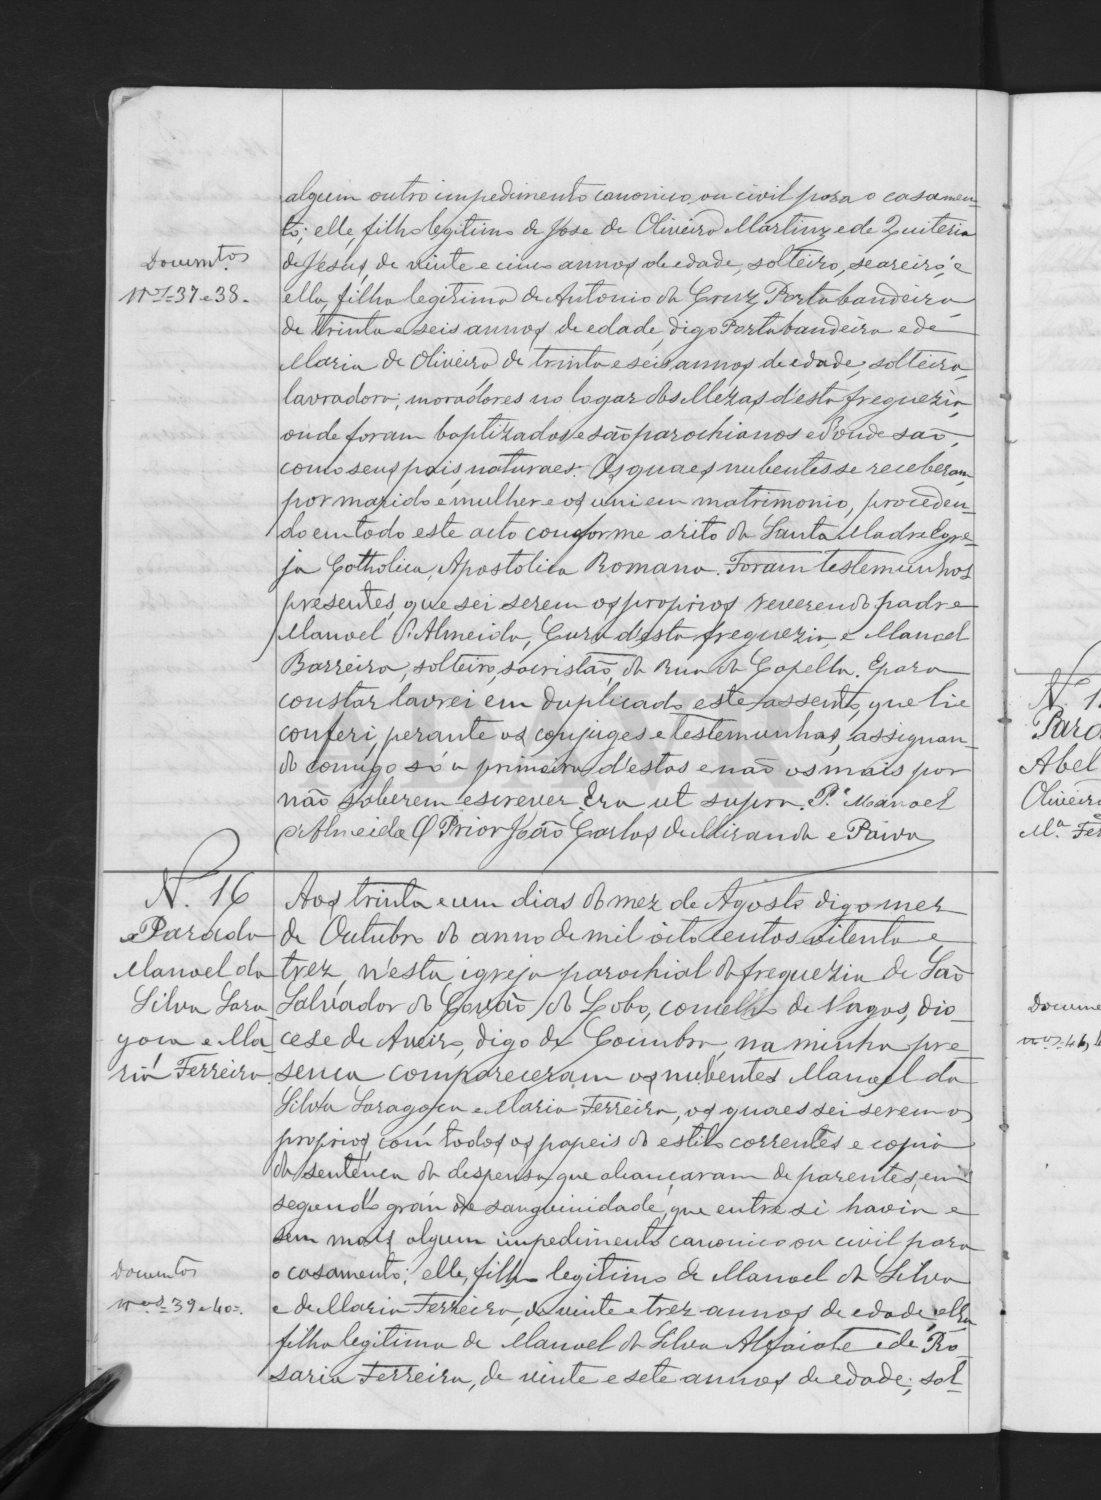 algum outro impedimento canonico ou civil para o casamen-
to; elle, filho legitimo de José de Oliveira Martins e de Quiteria
de Jesus, de vinte e cinco annos de edade, solteiro, seareiro, e
ella, filha legitima de Antonio da Cruz Portabandeira
de trinta e seis annos de edade, digo Portabandeira e de
Maria de Oliveira de trinta e seis annos de edade, solteira,
lavradora; moradores no logar das Mezas d'esta freguezia,
onde foram baptizados e são parochianos e d'onde são,
como seus pais, naturaes. Os quaes nubentes se receberam
por marido e mulher e os uni em matrimonio, proceden-
do em todo este acto conforme o rito da Santa Madre Egre-
ja Catholica, Apostolica Romana. Foram testemunhas
presentes, que sei serem os proprios reverendo padre
Manoel d'Almeida, Cura d'esta freguezia, e Manoel
Barreira, solteiro, sacristão, da Rua da Capella. E para
constar lavrei em duplicado este assento, que li e
conferi, perante os conjuges e testemunhas, assignan-
do comigo só a primeira d'estas e não os mais por
não saberem escrever. Era ut supra. P.e Manoel
d'Almeida O Prior João Carlos de Miranda e Paiva
Documtos
Nos 37 e 38.
N. 16
Parada
Manoel da
Silva Sara-
goça e Ma-
ria Ferreira
Aos trinta e um dias do mez de Agosto digo mez
de Outubro do anno de mil oito centos oitenta e
trez, n'esta igreja parochial da freguezia de São
Salvador do Covão do Lobo, concelho de Vagos, dio-
cese de Aveiro, digo de Coimbra, na minha pre-
sença compareceram os nubentes Manoel da
Silva Saragoça e Maria Ferreira, os quaes sei serem os
proprios, com todos os papeis do estilo correntes e copia
da sentença da despensa, que alcançaram de parentes, em
segundo gráu de sanguinidade, que entre si havia e
sem mais algum impedimento canonico ou civil para
o casamento; elle, filho legitimo de Manoel da Silva
e de Maria Ferreira, de vinte e trez annos de edade, ella
filha legitima de Manoel da Silva Alfaiate e de Ro-
saria Ferreira, de vinte e sete annos de edade; sol-
Documtos
Nos 39 e 40.
N. 1
Para
Abel
Oliveira
Ma. Fer
Docume
nos 41,